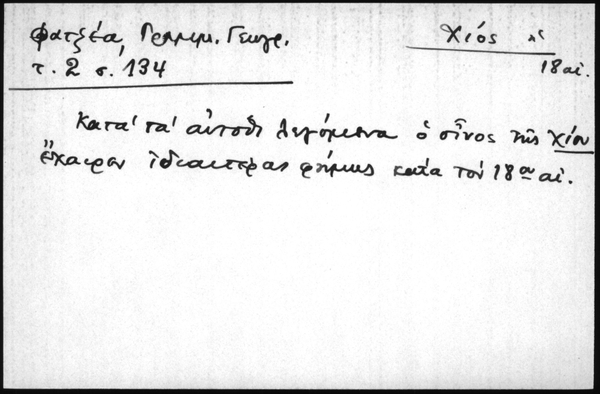 Φατζέα, Γραμμ. Γεωγρ.
τ. 2 σ. 134
Χίος
18 αι.
Κατά τα αυτόθι λεγόμενα ὁ οἶνος τῆς Χίου
ἔχαιρεν ἰδιαιτέρας φήμης κατά τον 18ον αἰ.